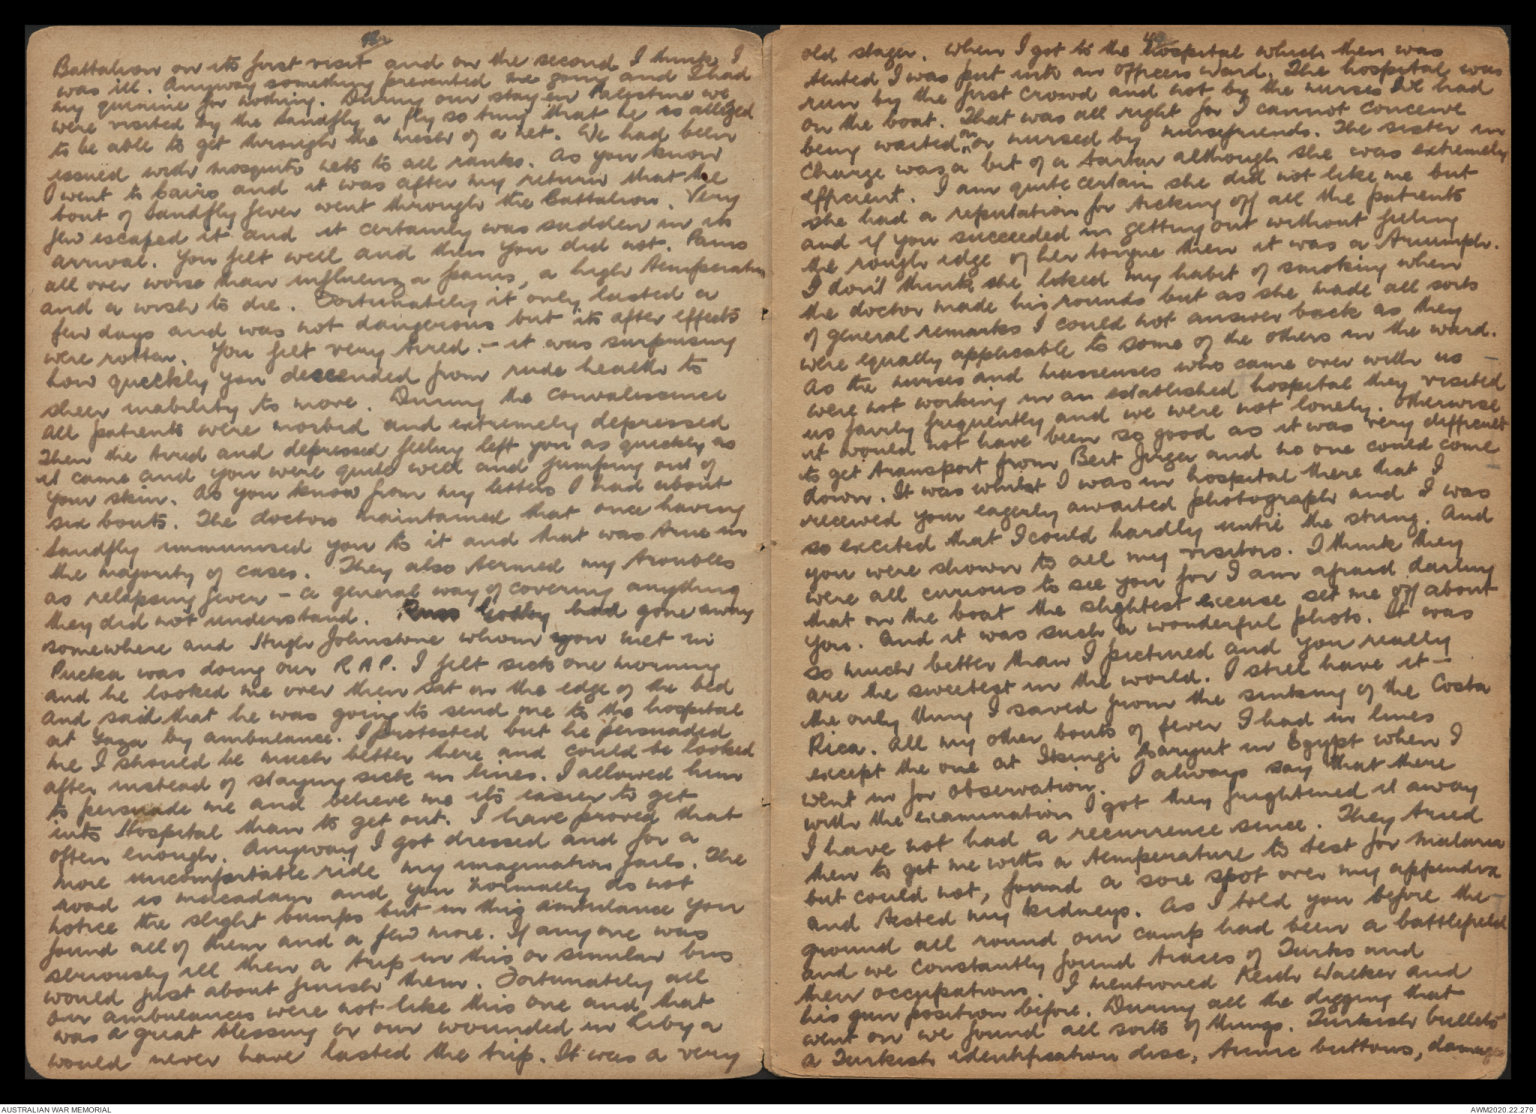 42
Battalion on its first visit and on the second I think I
was ill. Anyway something prevented me going and I had
my quinine for nothing. During our stay in Palestine we
were visited by the sandfly a fly so tiny that he is alleged
to be able to get through the mesh of a net. We had been
issued with mosquito nets to all ranks. As you know
I went to Cairo and it was after my return that the
bout of Sandfly fever went through the Battalion. Very
few escaped it and it certainly was sudden in its
arrival. You felt well and then you did not. Pains
all over worse than influenza pains, a high temperature
and a wish to die. Fortunately it only lasted a
few days and was not dangerous but its after effects
were rotten. You felt very tired. - it was surprising
how quickly you descended from rude health to
sheer inability to move. During the convalescence
all patients were morbid and extremely depressed
Then the tired and depressed feeling left you as quickly as
it came and you were quite well and jumping out of
your skin. As you know from my letters I had about
six bouts. The doctors maintained that once having
Sandfly immunised you to it and that was true in
the majority of cases. They also termed my troubles
as relapsing fever - a general way of covering anything
they did not understand. Russ Godby had gone away
somewhere and Hugh Johnstone whom you met in
Pucka was doing our R.A.P. I felt sick one morning
and he looked me over then sat on the edge of the bed
and said that he was going to send me to the hospital
at Gaza by ambulance. I protested but he persuaded
me I should be much better there and could be looked
after instead of staying sick in lines. I allowed him
to persuade me and believe me its easier to get
into Hospital than to get out. I have proved that
often enough. Anyway I got dressed and for a
more uncomfortable ride my imagination fails. The
road is macadam and you normally do not
notice the slight bumps but in this ambulance you
found all of them and a few more. If anyone was
seriously ill then a trip in this or similar bus
would just about finish them. Fortunately all
our ambulances were not like this one and that
was a great blessing or our wounded in Libya
would never have lasted the trip. It was a very
43
old stager. When I got to the hospital which then was
tented I was put into an officers ward. The hospital was
run by the first crowd and not by the nurses we had
on the boat. That was all right for I cannot conceive
being waited on or nursed by nursefriends. The sister in
charge was a bit of a tartar although she was extremely
efficient. I am quite certain she did not like me but
she had a reputation for ticking off all the patients
and if you succeeded in getting out without feeling
the rough edge of her tongue then it was a triumph.
I don't think she liked my habit of smoking when
the doctor made his rounds but as she made all sorts
of general remarks I could not answer back as they
were equally applicable to some of the others in the ward.
As the nurses and masseuses who came over with us
were not working in an established hospital they visited
us fairly frequently and we were not lonely. Otherwise
it would not have been so good as it was very difficult
to get transport from Beit Jirja and no one could come
down. It was whilst I was in hospital there that I
received your eagerly awaited photograph and I was
so excited that I could hardly untie the string. And
you were shown to all my visitors. I think they
were all curious to see you for I am afraid darling
that on the boat the slightest excuse set me off about
you. And it was such a wonderful photo. It was
so much better than I pictured and you really
are the sweetest in the world. I still have it -
the only thing I saved from the sinking of the Costa
Rica. All my other bouts of fever I had in lines
except the one at Ikingi Maryut in Egypt when I
went in for observation. I always say that there
with the examination I got they frightened it away
I have not had a recurrence since. They tried
then to get me with a temperature to test for malaria
but could not, found a sore spot over my appendix
and tested my kidneys. As I told you before the
ground all round our camp had been a battlefield
and we constantly found traces of Turks and
their occupations. I mentioned Keith Walker and
his gun position before. During all the digging that
went on we found all sorts of things. Turkish bullets
a Turkish identification disc, tunic buttons, damaged
AUSTRALIAN WAR MEMORIAL
AWM2020.22.279